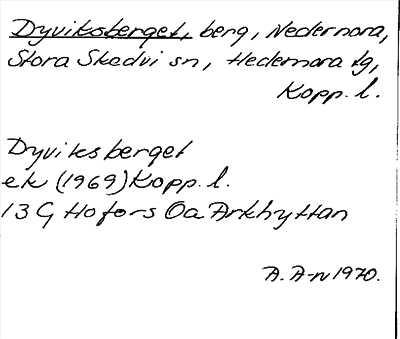 Dyviksberget, berg, Nedernora,
Stora Skedvi sn, Hedemora tg,
Kopp. l.
Dyviksberget
ek (1969) Kopp. l.
13 G Hofors Oa Arkhyttan
A. A-n 1970.